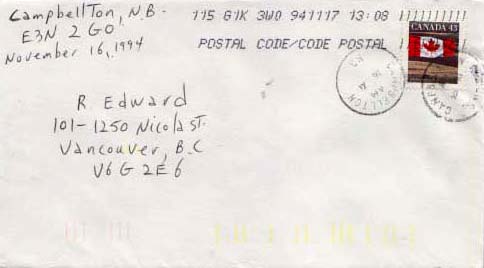 Campbellton, N.B.
E3N 2G0
November 16, 1994
115 G1K 3W0 941117 13:08
POSTAL CODE/CODE POSTAL
CANADA 43
R Edward
101-1250 Nicola ST.
Vancouver, B.C
V6G 2E6